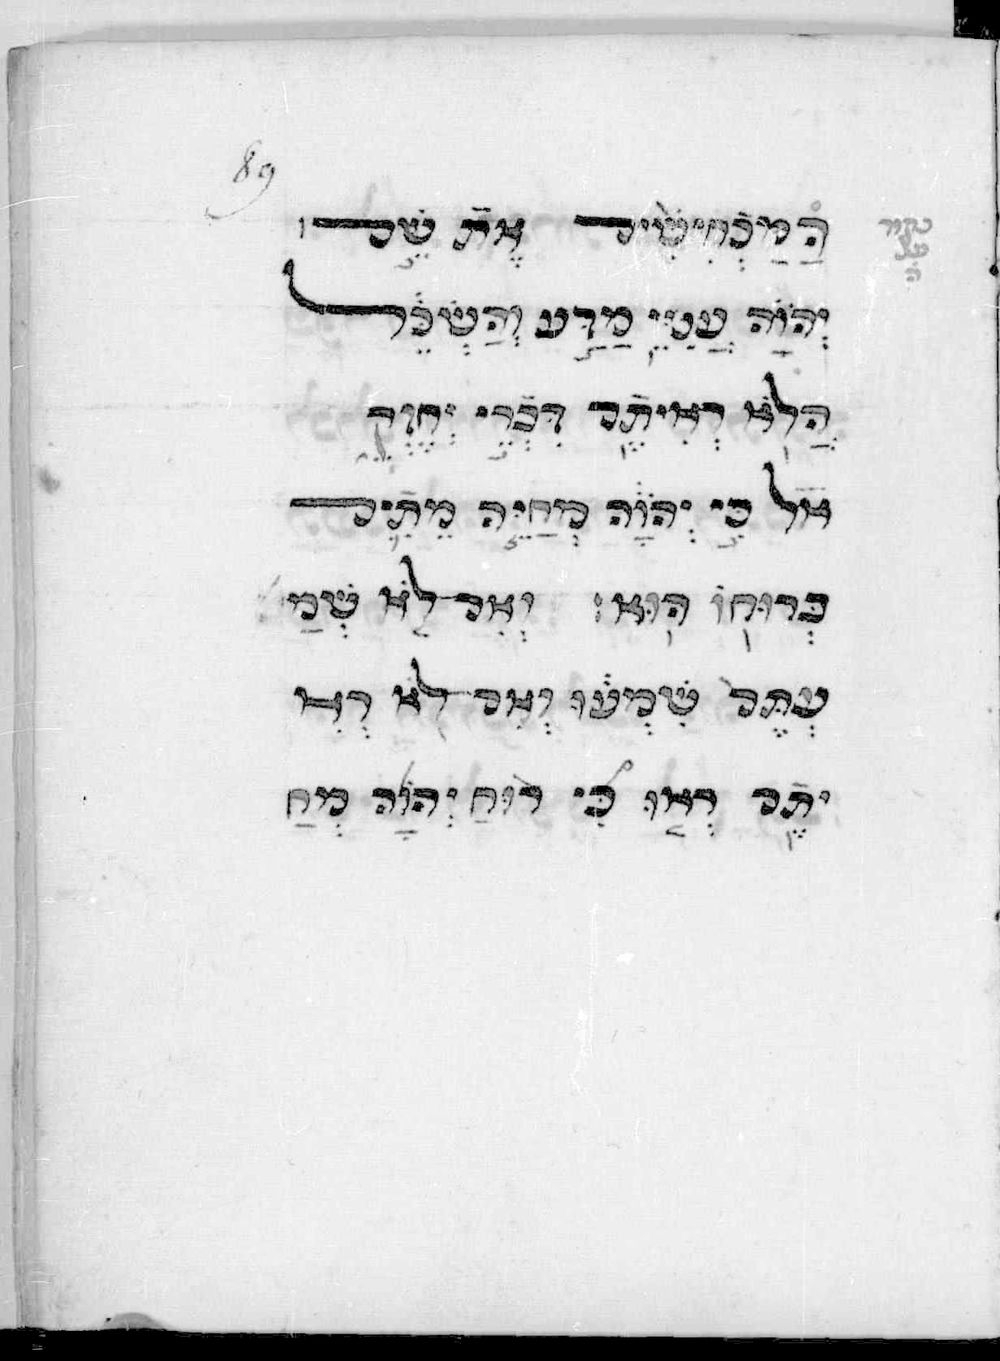 89
הַמַּכְחִישִׁים אֶת שֵׁם
יְהוָֹה עֲטֵי מַדָּע וְהַשְׂכֵּל
הֲלֹא רְאִיתֶם דִּבְרֵי יְחֶזְקֵ
אל כִּי יְהוָֹה מְחַיֵּה מֵתִים
בְּרוּחוֹ הוּא׃ וְאִם לֹא שְׁמַ
עְתֶּם שִׁמְעוּ וְאִם לֹא רְאִ
יתֶם רְאוּ כִּי רוּחַ יְהוָֹה מְחַ